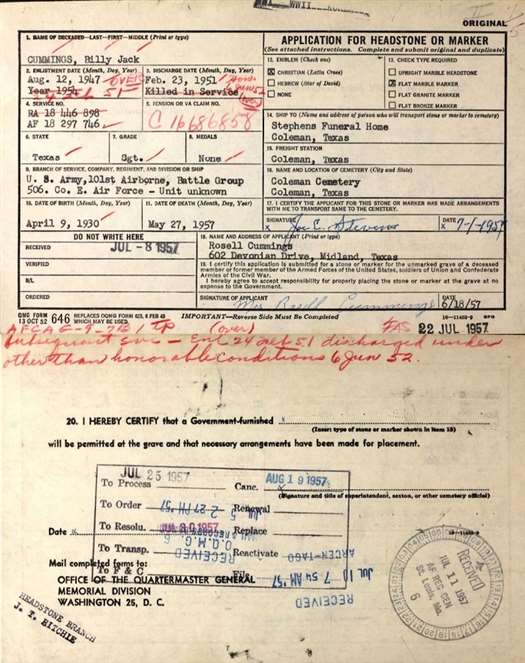 WWII
ORIGINAL
1. NAME OF DECEASED—LAST—FIRST—MIDDLE (Print or type)
CUMMINGS, Billy Jack
2. ENLISTMENT DATE (Month, Day, Year)
Aug. 12, 1947
Year 1951
3. DISCHARGE DATE (Month, Day, Year)
Feb. 23, 1951
Killed in Service
4. SERVICE NO.
RA 18 446 898
AF 18 297 746
5. PENSION OR VA CLAIM NO.
C 16686858
6. STATE
Texas
7. GRADE
Sgt.
8. MEDALS
None
9. BRANCH OF SERVICE, COMPANY, REGIMENT, AND DIVISION OR SHIP
U. S. Army, 101st Airborne, Battle Group
506. Co. E. Air Force - Unit unknown
10. DATE OF BIRTH (Month, Day, Year)
April 9, 1930
11. DATE OF DEATH (Month, Day, Year)
May 27, 1957
APPLICATION FOR HEADSTONE OR MARKER
(See attached instructions. Complete and submit original and duplicate)
12. EMBLEM (Check one)
X CHRISTIAN (Latin Cross)
HEBREW (Star of David)
NONE
13. CHECK TYPE REQUIRED
UPRIGHT MARBLE HEADSTONE
X FLAT MARBLE MARKER
FLAT GRANITE MARKER
FLAT BRONZE MARKER
14. SHIP TO (Name and address of person who will transport stone or marker to cemetery)
Stephens Funeral Home
Coleman, Texas
15. FREIGHT STATION
Coleman, Texas
16. NAME AND LOCATION OF CEMETERY (City and State)
Coleman Cemetery
Coleman, Texas
17. I CERTIFY THE APPLICANT FOR THIS STONE OR MARKER HAS MADE ARRANGEMENTS
WITH ME TO TRANSPORT SAME TO THE CEMETERY.
SIGNATURE
X Joe C. Stevens
DATE
7-1-1957
DO NOT WRITE HERE
RECEIVED
JUL - 8 1957
VERIFIED
B/L
ORDERED
18. NAME AND ADDRESS OF APPLICANT (Print or type)
Rosell Cummings
602 Devonian Drive, Midland, Texas
19. I certify this application is submitted for a stone or marker for the unmarked grave of a deceased
member or former member of the Armed Forces of the United States, soldiers of Union and Confederate
Armies of the Civil War.
I hereby agree to accept responsibility for properly placing the stone or marker at the grave at no
expense to the Government.
SIGNATURE OF APPLICANT
Mrs Rosell Cummings
DATE
6/18/57
QMG FORM 646
13 OCT 52
REPLACES OQMG FORM 623, 6 FEB 43
WHICH MAY BE USED.
IMPORTANT—Reverse Side Must be Completed
22 JUL 1957
(over)
Subsequent svc - Enl 24 Feb 51 discharged under
other than honorable conditions 6 Jun 52.
20. I HEREBY CERTIFY that a Government-furnished
(Insert type of stone or marker shown in Item 13)
will be permitted at the grave and that necessary arrangements have been made for placement.
JUL 25 1957
AUG 19 1957
To Process
Canc.
(Signature and title of superintendent, sexton, or other cemetery official)
To Order
Renewal
To Resolu.
JUL 30 1957
Replace
Date X
To Transp.
Reactivate
To F & C
File
RECEIVED
Mail completed forms to:
OFFICE OF THE QUARTERMASTER GENERAL
MEMORIAL DIVISION
WASHINGTON 25, D. C.
JUL 10 7 54 AM '57
RECEIVED
RECEIVED
JUL 11 1957
St. Louis, Mo.
6
HEADSTONE BRANCH
J. T. RITCHIE